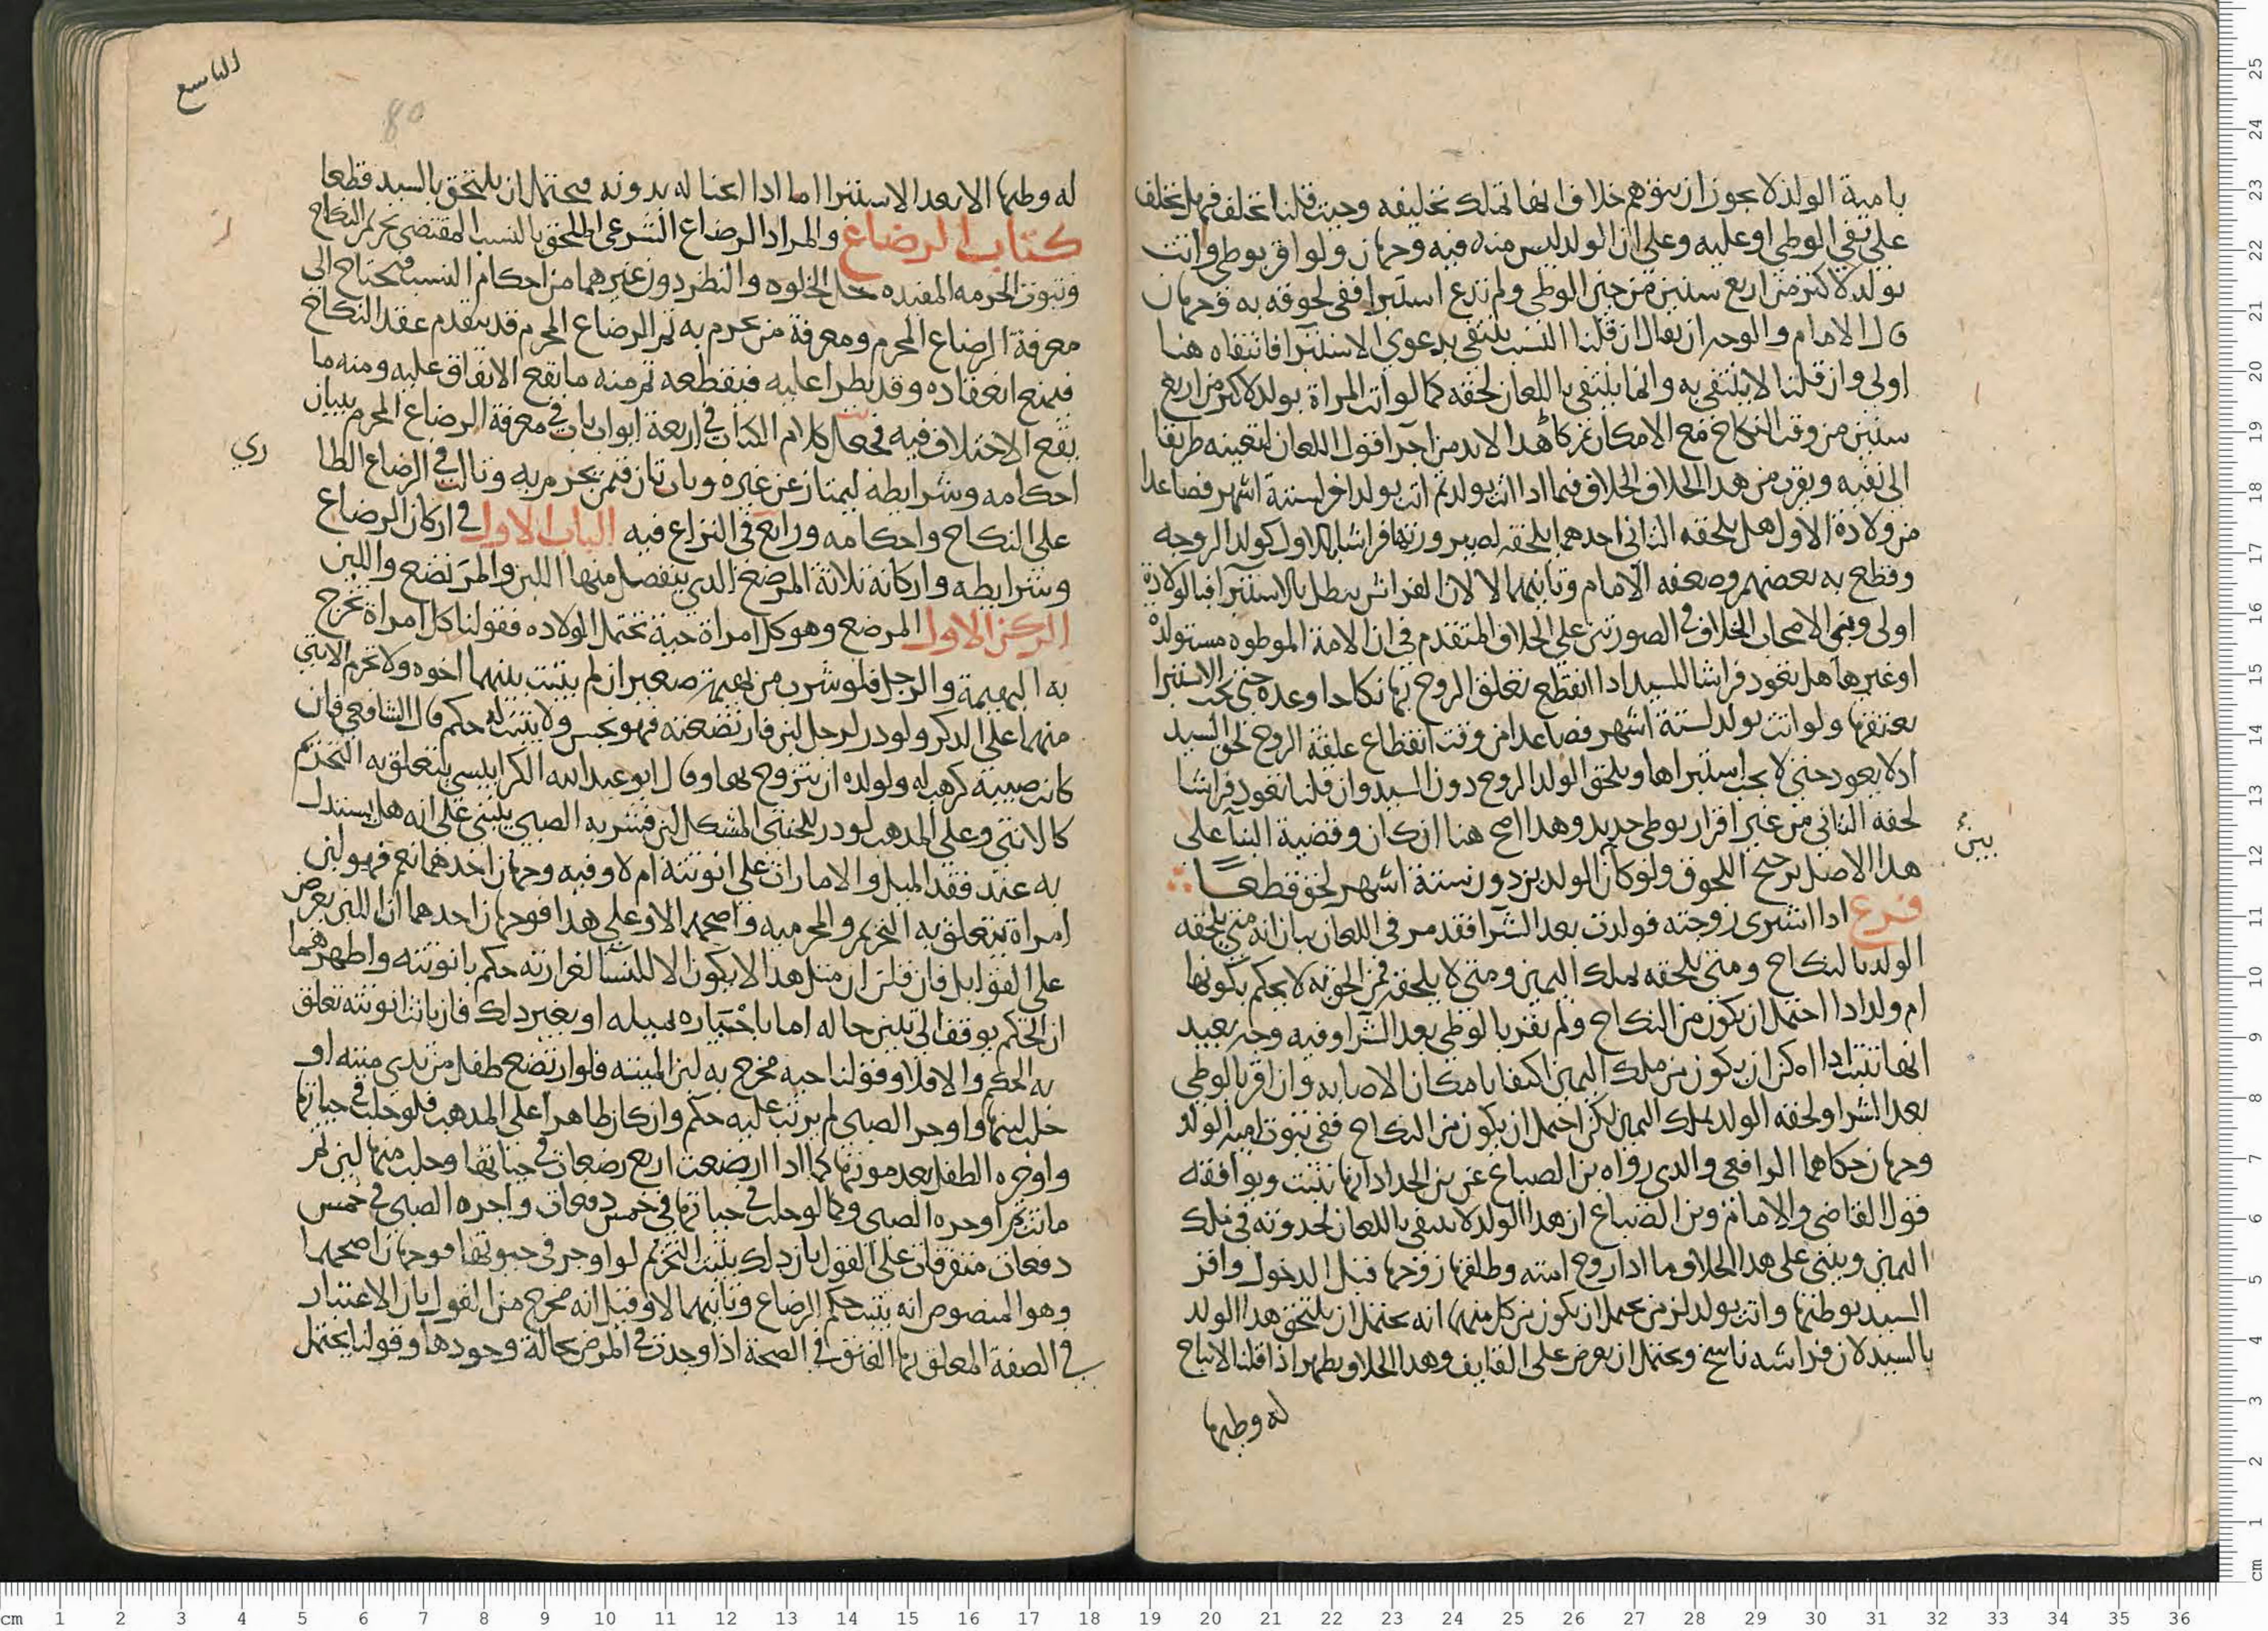 بامية الولد لا يجوز ان يتوهم خلاف انها تملك تحليفه وحيث قلنا يحلف فهل يحلف
على نفي الوطي او عليه وعلى ان الولد ليس منه فيه وجهان ولو اقر بوطي واتت
بولد لاكثر من اربع سنين من حين الوطي ولم تدع استبرا ففي لحوقه به وجهان
قال الامام والوجه ان يقال ان قلنا النسب ينتفي بدعوى الاستبرا فانتفاه هنا
اولى وان قلنا لا ينتفي به وانما ينتفي باللعان لحقه كما لو اتت المراة بولد لاكثر من اربع
سنين من وقت النكاح مع الامكان هدا لابد من اجرا قول اللعان لتعينه طريقا
الى نفيه ويقرب من هدا الخلاف الخلاف فيما ادا اتت بولد ثم اتت بولد اخر لستة اشهر فصاعدا
من ولادة الاول هل يلحقه الثاني احدهما يلحقه لصيرورتها فراشا بالاول كولد الزوجه
وقطع به بعضهم وضعفه الامام وثانيهما لا لان الفراش يبطل بالاستبرا فبالولادة
اولى وبنى الاصحاب الخلاف في الصورتين على الخلاف المتقدم في ان الامة الموطوه مستولدة
او غيرها هل تعود فراشا للسيد ادا انقطع تعلق الزوج بها نكاحا وعده حتى يجب الاستبرا
بعتقها ولو اتت بولد لستة اشهر فصاعدا من وقت انقطاع علقة الزوج لحق السيد
او لا يعود حتى لا يجب استبراها ويلحق الولد الزوج دون السيد وان قلنا تعود فراشا
لحقه الثاني من غير اقرار بوطي جديد وهدا اصح هنا ان كان وقضية البنا على
هدا الاصل ترجيح اللحوق ولو كان الولدين دون ستة اشهر لحق قطعا
بين
فرع ادا اشترى زوجته فولدت بعد الشرا فقد مر في اللعان بيان انه متى يلحقه
الولد بالنكاح ومتى يلحقه بملك اليمين ومتى لا يلحقه فمن الحق به لا يحكم بكونها
ام ولد ادا احتمل ان يكون من النكاح ولم يقر بالوطي بعد الشرا وفيه وجه بعيد
انها تثبت ادا امكن ان يكون من ملك اليمين اكتفا بامكان الاصابه وان اقر بالوطي
بعد الشرا ولحقه الولد بملك اليمين لكن احتمل ان يكون من النكاح ففي ثبوت امية الولد
وجهان حكاهما الرافعي والدي رواه بن الصباغ عن بن الحداد انها تثبت ويوافقه
قول القاضي والامام وبن الصباغ ان هدا الولد لا ينتفي باللعان لحدوثه في ملك
اليمين وينبني على هدا الخلاف ما ادا زوج امته وطلقها زوجها قبل الدخول واقر
السيد بوطئها واتت بولد لزمن يحتمل ان يكون من كل منهما انه يحتمل ان يلتحق هدا الولد
بالسيد لان فراشه ناسخ ويحتمل ان يعرض على القايف وهدا الخلاف يظهر اذا قلنا لا يباح
له وطيها
التاسع
80
له وطيها الا بعد الاستبرا اما ادا ابحنا له بدونه فيحتمل ان يلتحق بالسيد قطعا
كتاب الرضاع والمراد الرضاع الشرعي الملحق بالنسب المقتضي تحريم النكاح
وثبوت الحرمه المفيده حل الخلوه والنظر دون غيرهما من احكام النسب فيحتاج الى
معرفة الرضاع المحرم ومعرفة من يحرم به ثم الرضاع المحرم قد يتقدم عقد النكاح
فيمنع انعقاده وقد يطرا عليه فيقطعه ثم منه ما يقع الاتفاق عليه ومنه ما
يقع الاختلاف فيه فجعل كلام الكتاب في اربعة ابواب باب في معرفة الرضاع المحرم ببيان
احكامه وشرايطه ليمتاز عن غيره وباب ثان فيمن يحرم به وثالث في الرضاع الطا
ري
على النكاح واحكامه ورابع في النزاع فيه الباب الاول في اركان الرضاع
وشرايطه واركانه ثلاثة المرضع الدي ينفصل منها اللبن والمرتضع واللبن
الركن الاول المرضع وهو كل امراة حية تحتمل الولاده فقولنا كل امراة تخرج
به البهيمة والرجل فلو شرب من بهيمة صغيران لم يثبت بينهما اخوه ولا تحرم الانثى
منهما على الدكر ولو در لرجل لبن فارتضع منه فهو نجس ولا يثبت له حكم قال الشافعي فان
كانت صبية كرهت له ولولده ان يتزوج بها وقال ابو عبد الله الكرابيسي يتعلق به التحريم
كالانثى وعلى المدهب لو در للخنثى المشكل لبن فشربه الصبي ينبني على انه هل يستدل
به عند فقد الميل والامارات على انوثته ام لا وفيه وجهان احدهما نعم فهو لبن
امراة يتعلق به التحريم والمحرمية واصحهما لا وعلى هدا فوجهان احدهما ان اللبن يعرض
على القوابل فان قلن ان مثل هدا لا يكون الا للنسا لغزارته حكم بانوثته واظهرهما
ان الحكم يوقف الى تبين حاله اما باختياره بميله او بغير دلك فان بانت انوثته تعلق
به الحكم والا فلا وقولنا حيه مخرج به لبن الميته فلو ارتضع طفل من ثدي ميته او
حلب لبنها واوجر الصبي لم يرتب عليه حكم وان كان طاهرا على المدهب فلو حلب في حياتها
واوجره الطفل بعد موتها كما ادا ارضعت اربع رضعات في حياتها وحلب منها لبن ثم
ماتت ثم اوجره الصبي وكما لو حلب في حياتها في خمس دفعات واجره الصبي في خمس
دفعات متفرقات على القول بان دلك يثبت التحريم لو اوجر في حيوتها فوجهان اصحهما
وهو المنصوص انه يثبت حكم الرضاع وثانيهما لا وقيل انه مخرج من القول بان الاعتبار
في الصفة المعلق بها العتق في الصحة اذا وجدت في المرض بحالة وجودها وقولنا يحتمل